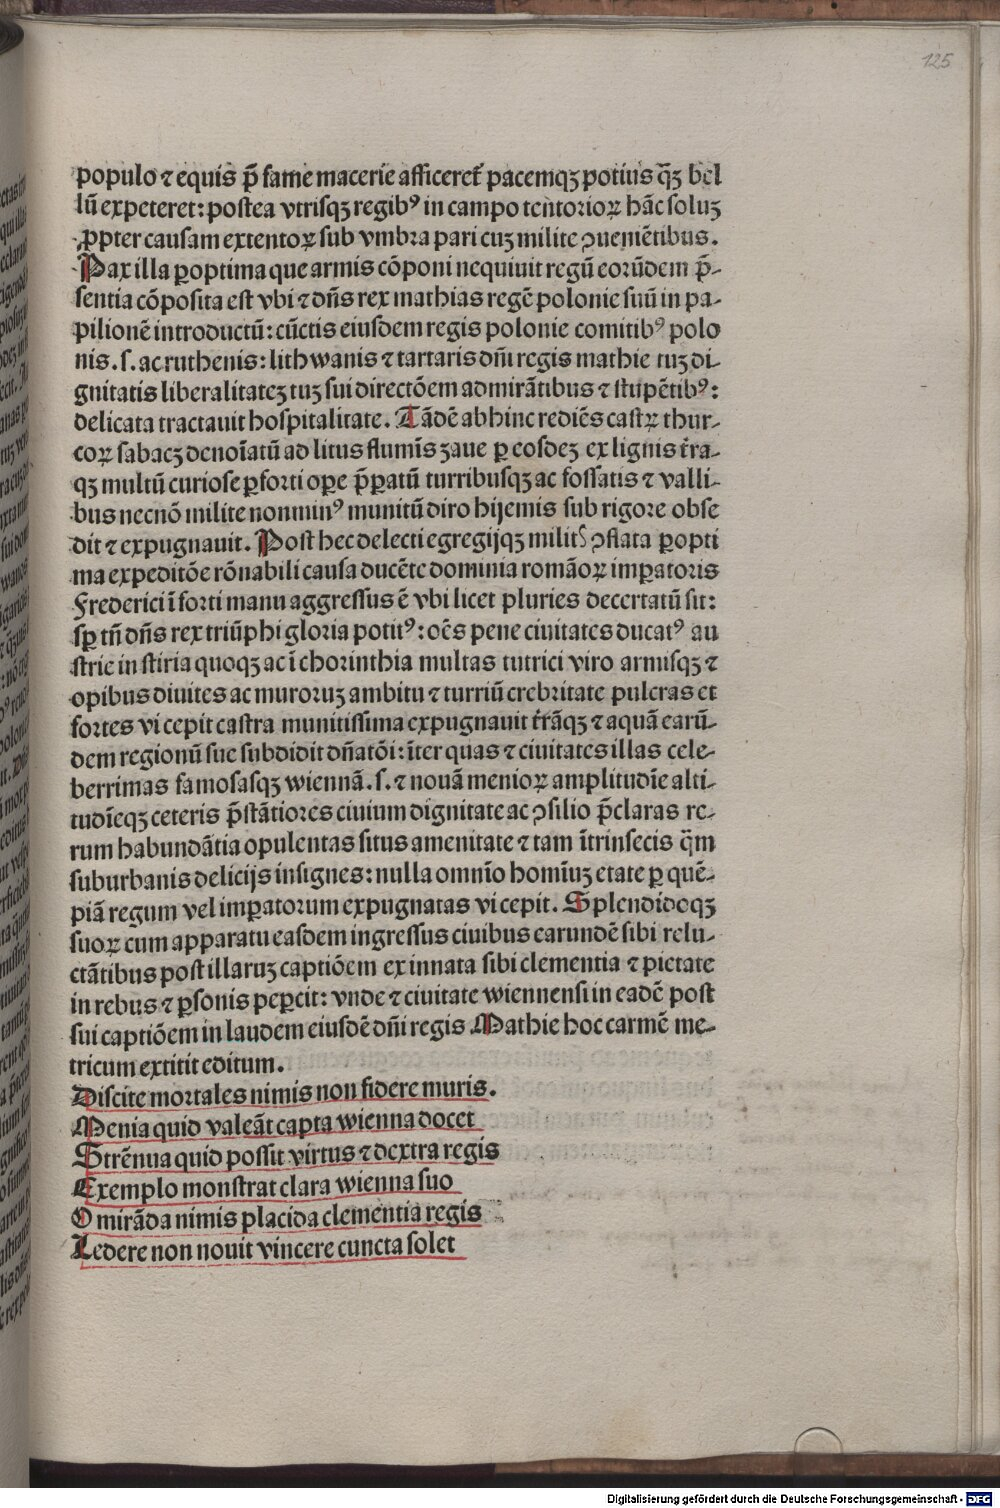 125
populo ⁊ equis p̄ fame macerie afficeret᷑ pacemqꝫ potius q̄ꝫ bel
lū expeteret: postea vtrisqꝫ regibꝰ in campo tentorioꝝ hāc soluꝫ
ꝓpter causam extentoꝝ sub vmbra pari cuꝫ milite ꝯueniētibus.
Pax illa ꝑoptima que armis cōponi nequiuit regū eorūdem p̄-
sentia cōposita est vbi ⁊ dn̄s rex mathias regē polonie suū in pa-
pilionē introductū: cūctis eiusdem regis polonie comitibꝰ polo
nis.s. ac ruthenis: lithwanis ⁊ tartaris dn̄i regis mathie tuꝫ di-
gnitatis liberalitateꝫ tuꝫ sui directōem admirātibus ⁊ stupētibꝰ:
delicata tractauit hospitalitate. Tādē abhinc rediēs castꝝ thur-
coꝝ sabacꝫ denoīatū ad litus flumīs ꝫaue ꝑ eosdeꝫ ex lignis t̄ra-
qꝫ multū curiose ꝑforti oꝑe p̄ꝑatū turribusqꝫ ac fossatis ⁊ valli-
bus necnō milite nonminꝰ munitū diro hijemis sub rigore obse
dit ⁊ expugnauit. Post hec delecti egregijqꝫ milit̕ ꝯflata ꝑopti
ma expeditōe rōnabili causa ducēte dominia romāoꝝ imꝑatoris
Frederici ī forti manu aggressus ē vbi licet pluries decertatū sit:
sꝑ tn̄ dn̄s rex triūphi gloria potitꝰ: oēs pene ciuitates ducatꝰ au
strie in stiria quoqꝫ ac ī chorinthia multas tutrici viro armisqꝫ ⁊
opibus diuites ac muroruꝫ ambitu ⁊ turriū crebritate pulcras et
fortes vi cepit castra munitissima expugnauit t̄rāqꝫ ⁊ aquā earū-
dem regionū sue subdidit dn̄atōi: īter quas ⁊ ciuitates illas cele-
berrimas famosasqꝫ wiennā.s. ⁊ nouā menioꝝ amplitudīe alti-
tudīeqꝫ ceteris p̄stātiores ciuium dignitate ac ꝯsilio p̄claras re-
rum habundātia opulentas situs amenitate ⁊ tam ītrinsecis q̄m
suburbanis delicijs insignes: nulla omnīo homīuꝫ etate ꝑ quē-
piā regum vel imꝑatorum expugnatas vi cepit. Splendidoqꝫ
suoꝝ cum apparatu easdem ingressus ciuibus earundē sibi relu-
ctātibus post illaruꝫ captiōem ex innata sibi clementia ⁊ pietate
in rebus ⁊ ꝑsonis peꝑcit: vnde ⁊ ciuitate wiennensi in eadē post
sui captiōem in laudem eiusdē dn̄i regis Mathie hoc carmē me-
tricum extitit editum.
Discite mortales nimis non fidere muris.
Menia quid valeāt capta wienna docet
Strēnua quid possit virtus ⁊ dextra regis
Exemplo monstrat clara wienna suo
O mirāda nimis placida clementia regis
Ledere non nouit vincere cuncta solet
Digitalisierung gefördert durch die Deutsche Forschungsgemeinschaft - DFG